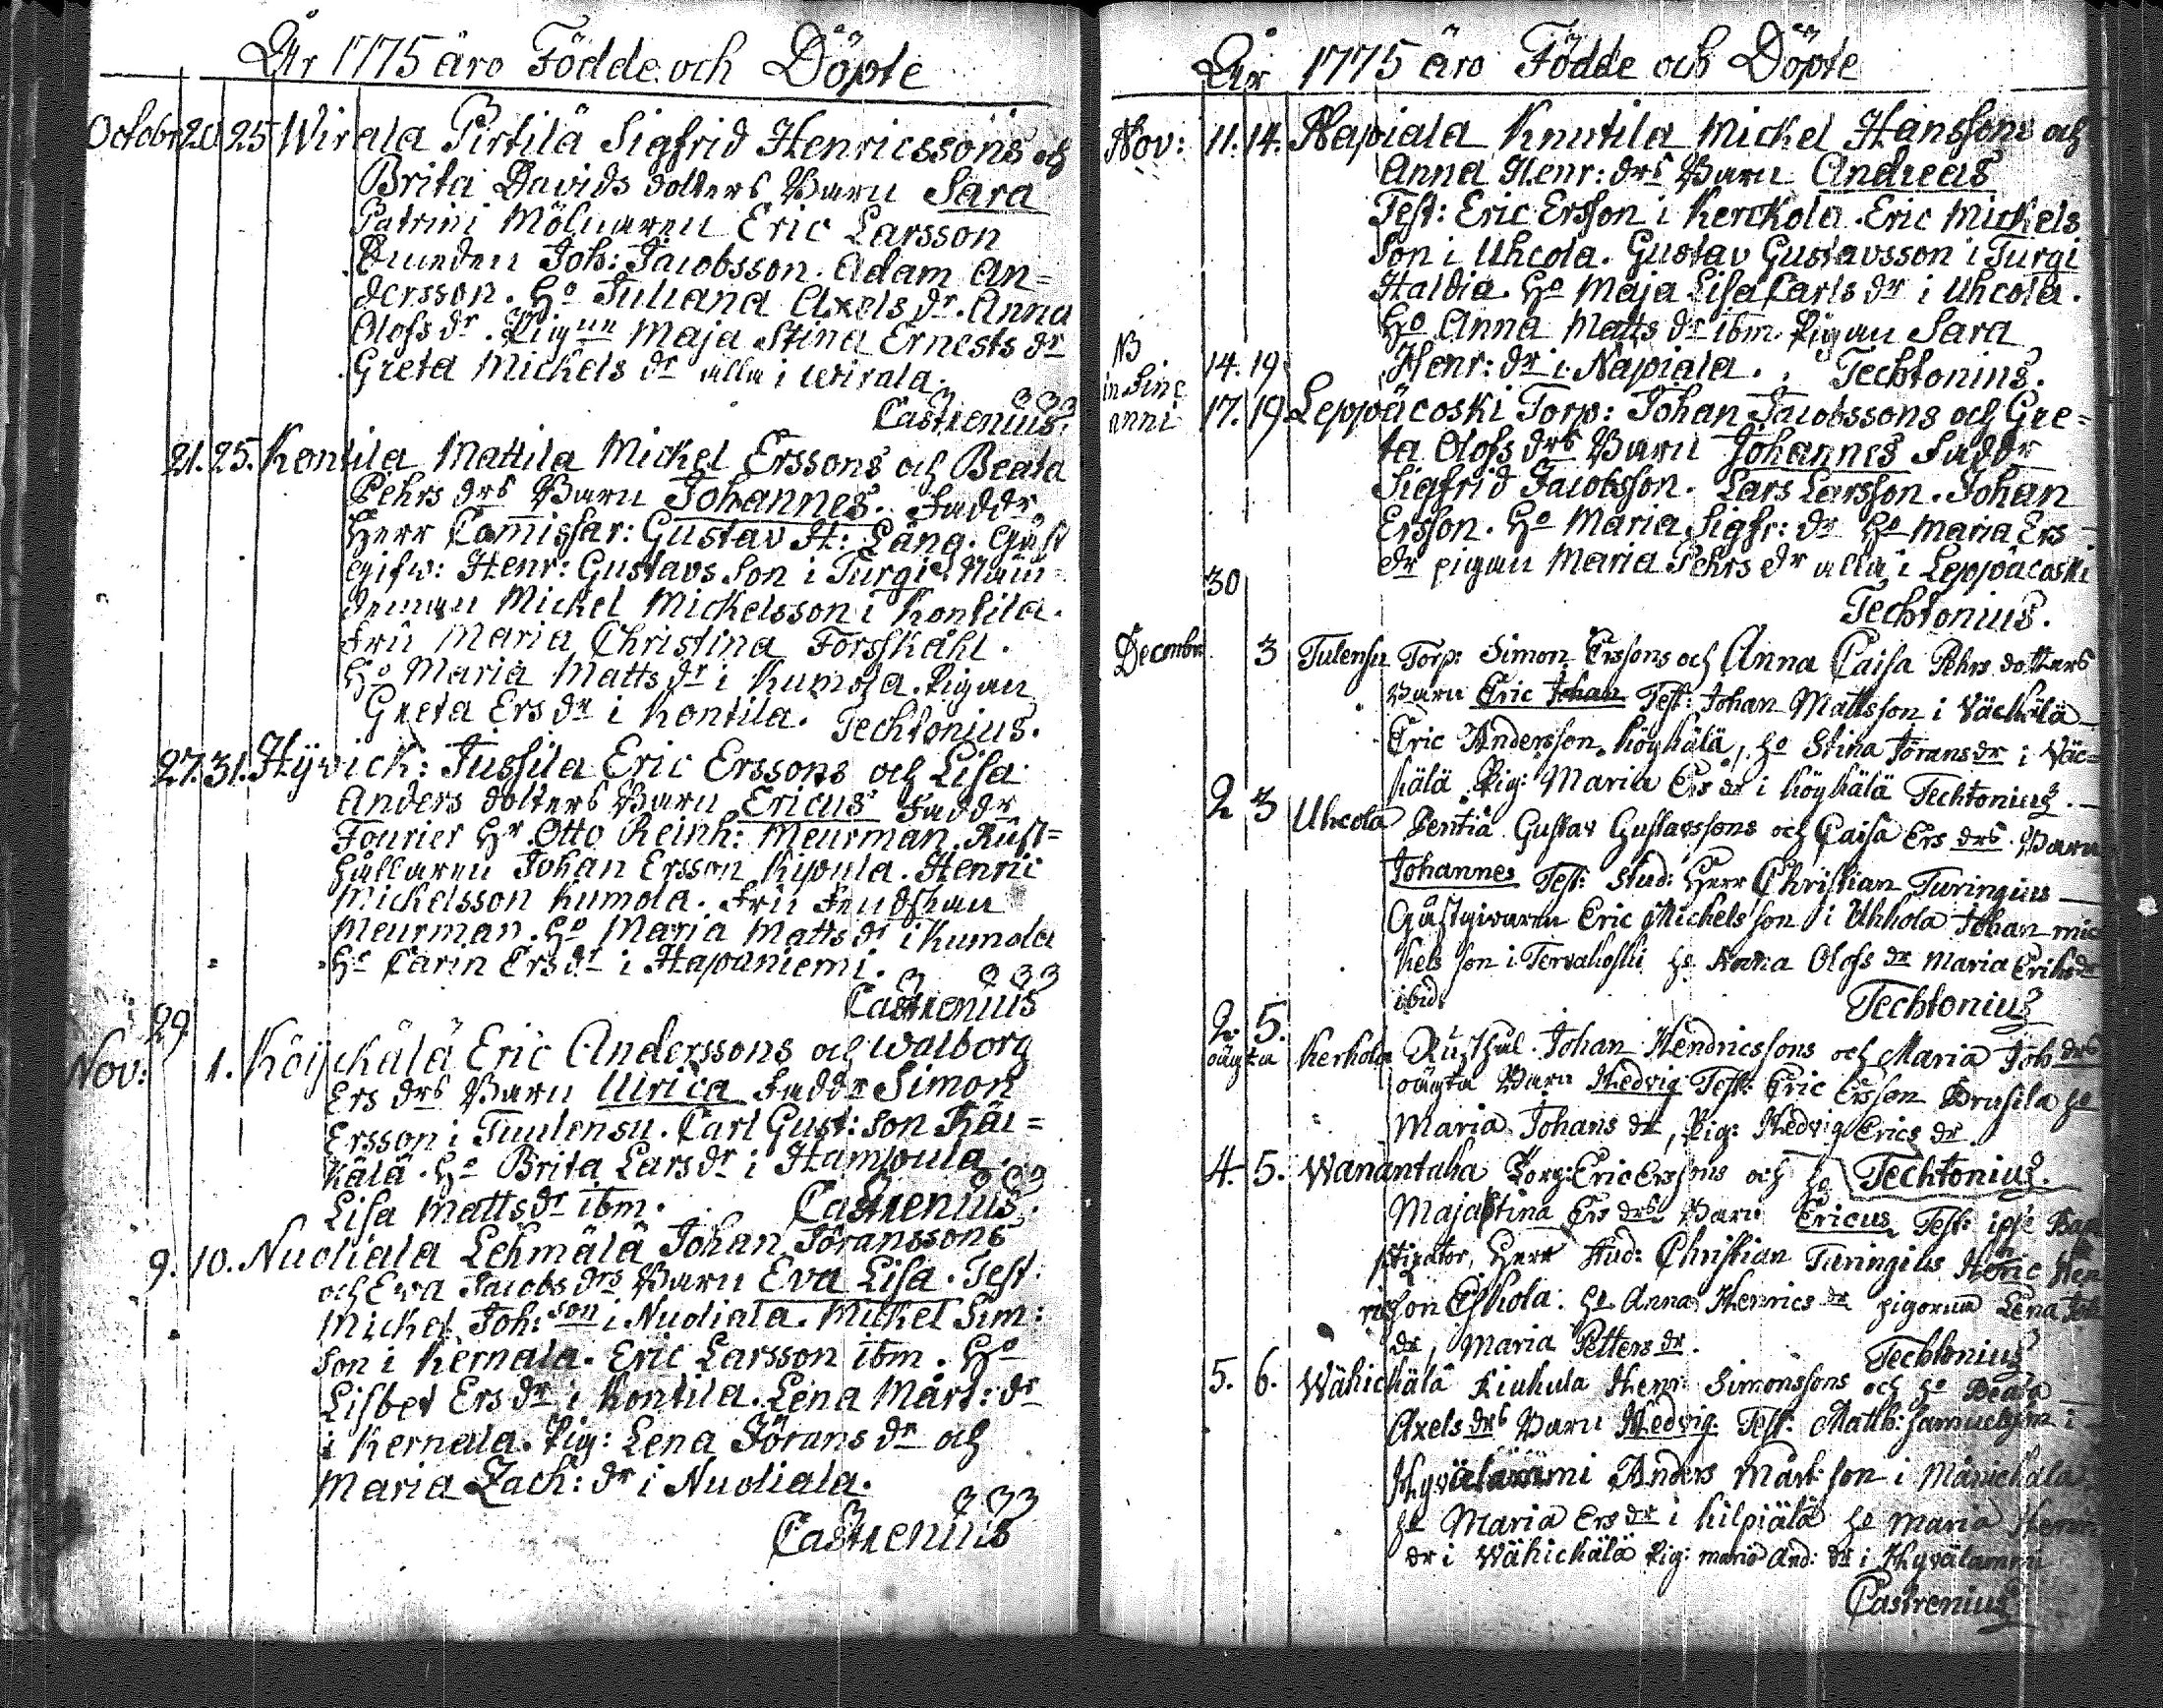 År 1775 äro Födde och Döpte
Octobr 20. 25 Wirala Pirtilä Sigfrid Henricssons och
Brita Davids dotters Barn Sara
Patrini Mölnaren Eric Larsson
Bonden Joh: Jacobsson. Adam An=
dersson. Ho Juliana Axels dr. Anna
Olofs dr. Pigan Maja Stina Ernests dr
Greta Mickels dr alla i Wirala.
Castrenius.
21. 25. Kontila Mattila Mickel Erssons och Beata
Pehrs drs Barn Johannes. Faddr
Herr Comissar: Gustav H: Lång. Gäst
gifw: Henr: Gustavs Son i Turgi. Näm=
deman Mickel Mickelsson i Kontila.
Fru Maria Christina Forsskåhl.
Ho Maria Matts dr i Kumola. Pigan
Greta Ers dr i Kontila. Techtonius.
27. 31. Hyvick: Jussila Eric Erssons och Lisa
Anders dotters Barn Ericus Faddr
Fourier Hr Otto Reinh: Meurman. Rust=
hållaren Johan Ersson Kipula. Henric
Mickelsson Kumola. Fru
Meurman. Ho Maria Matts dr i Kumola
Ho Carin Ers dr i Hapaniemi.
Castrenius
29
Nov: 1. Köyckälä Eric Anderssons och Walborg
Ers drs Barn Ulrica Faddr Simon
Ersson i Tuulensu. Carl Gust: son Räi=
kälä. Ho Brita Lars dr i Hampula
Lisa Matts dr ibm. Castrenius.
9. 10. Nudiala Lehmälä Johan Jöranssons
och Ewa Jacobs drs Barn Eva Lisa. Test.
Mickel Joh: son i Nudiala. Mickel Sim:
son i Kernala. Eric Larsson ibm. Ho
Lisbet Ers dr i Kontila. Lena Mårt: dr
i Kernala. Pig: Lena Jörans dr och
Maria Zach: dr i Nudiala.
Castrenius
År 1775 äro Födde och Döpte
Nov: 11. 14. Napiala Knutila Mickel Hanssons och
Anna Henr: drs Barn Andreas
Test: Eric Ersson i Kerckola. Eric Mickels
Son i Uhcola. Gustav Gustavsson i Turgi
Haldia. Ho Maja Lisa Carls dr i Uhcola.
Ho Anna Matts dr ibm. Pigan Sara
NB 14. 19. Henr: dr i Napiala. Techtonius.
in fine
anni 17. 19 Leppäcoski Torp: Johan Jacobssons och Gre=
ta Olofs drs Barn Johannes Faddr
Sigfrid Jacobsson. Lars Larsson. Johan
Ersson. Ho Maria Sigfr: dr Ho Maria Ers
dr pigan Maria Pehrs dr alla i Leppäcoski
30
Techtonius.
Decembr 3 Tulensu Torp: Simon Erssons och Anna Caisa Pehrs dotters
Barn Eric Johan Test: Johan Mattsson i Väckälä
Eric Andersson Köykälä, Ho Stina Jörans dr i Väc=
kälä Pig: Maria Ers dr i Köykälä Techtonius.
2 3 Uhcola Pentiä Gustav Gustavssons och Caisa Ers drs Barn
Johannes Test: Stud: Herr Christian Turingius
Gästgivaren Eric Mickels son i Uhkola Johan Mic
kels son i Tervakoski Ho Anna Olofs dr Maria Eriks dr
ibid. Techtonius
2. 5.
oägta Kerkola Rusthål. Johan Hendricssons och Maria Joh drs
oägta Barn Hedvig Test: Eric Ersson Brusila Ho
Maria Johans dr, Pig: Hedvig Erics dr
4. 5. Wanantaka Torp: Eric Erssons och Ho Techtonius.
Maja Stina Ers drs Barn Ericus Test: ipse Bap
tizator, Herr Stud: Christian Turingius Henric Hen
ricsson Eskola. Ho Anna Henrics dr pigorna Lena Joh
dr, Maria Petters dr. Techtonius
5. 6. Wähickälä Kiukula Henr: Simonssons och Ho Beata
Axels drs Barn Hedvig. Test: Matth: Samuelson i
Hyvälammi Anders Mårt: son i Mänickälä
Ho Maria Ers dr i Kilpiälä Ho Maria Henri
dr i Wähickälä Pig: Maria And: dr i Hyvälammi
Castrenius